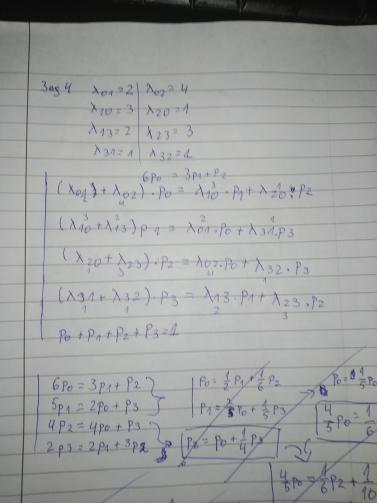 Зад 4 λ01=2 | λ02=4
λ10=3 | λ20=1
λ13=2 | λ23=3
λ31=1 | λ32=1
6p0 = 3p1+p2
(λ01+λ02)·p0 = λ10·p1+λ20·p2
(λ10+λ13)p1 = λ01·p0+λ31·p3
(λ20+λ23)·p2 = λ02·p0+λ32·p3
(λ31+λ32)·p3 = λ13·p1+λ23·p2
p0+p1+p2+p3=1
6p0 = 3p1+p2
5p1 = 2p0+p3
4p2 = 4p0+p3
2p3 = 2p1+3p2
p0 = 1/2 p1 + 1/6 p2
p1 = 2/5 p0 + 1/5 p3
p2 = p0 + 1/4 p3
4/5 p0 = 1/6
4/5 p0 = 1/6 p2 + 1/10